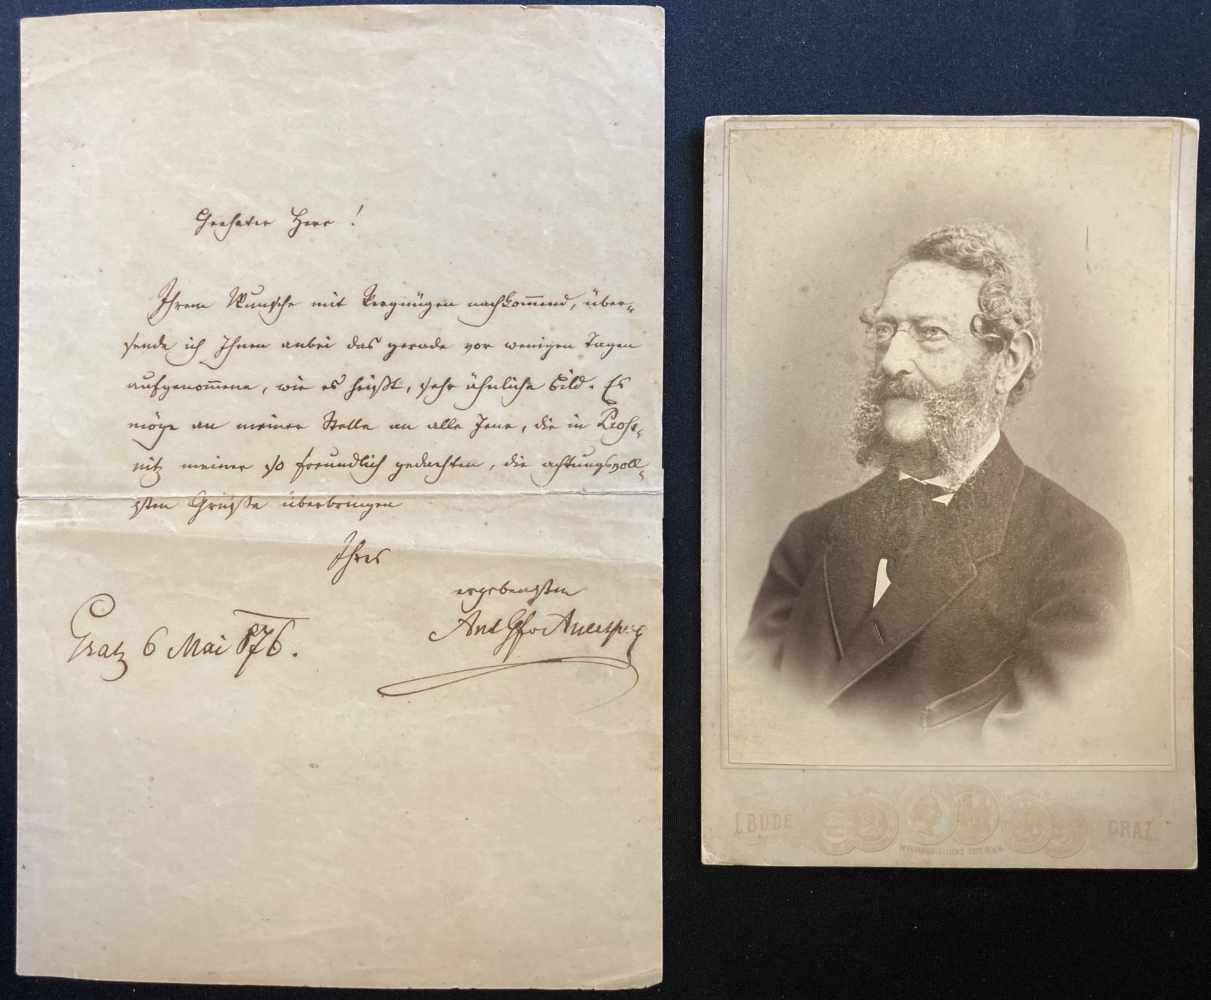 Geehrter Herr!
Ihrem Wunsche mit Vergnügen nachkommend, über-
sende ich Ihnen anbei das gerade vor wenigen Tagen
aufgenom̅ene, wie es heißt, sehr ähnliche Bild. Es
möge an meiner Stelle an alle Jene, die in Proß-
nitz meiner so freundlich gedachten, die achtungsvoll-
sten Grüße überbringen
Ihres
ergebensten
Ant Gf v Auersperg
Gratz 6 Mai 876.
L. BUDE
GRAZ.